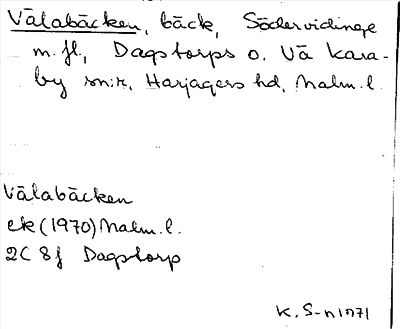 Välabäcken, bäck, Södervidinge
m.fl., Dagstorps o. Vä Kara-
by sn:r, Harjagers hd, Malm. l.
Välabäcken
ek (1970) Malm. l.
2C 8f Dagstorp
K. S-n 1971